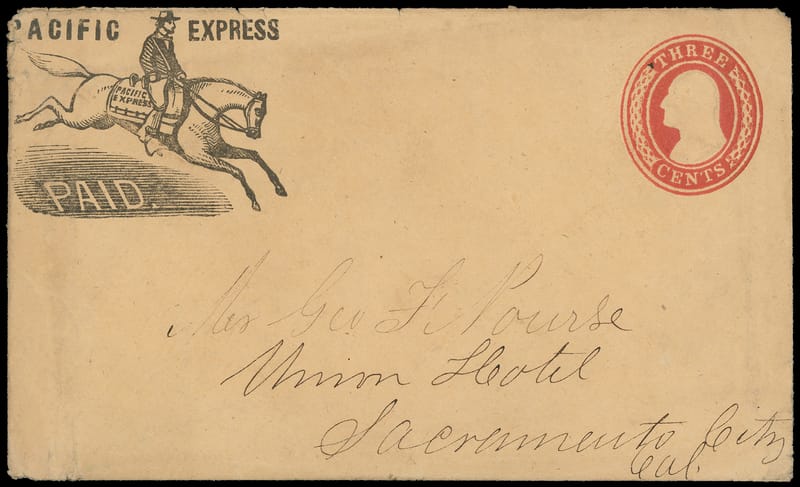 PACIFIC EXPRESS
PACIFIC
EXPRESS
PAID.
THREE
CENTS
Mr Geo F. Nourse
Union Hotel
Sacramento City
Cal.